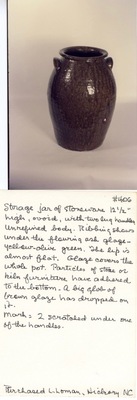 #906
Storage jar of stoneware 12½"
high, ovoid, with two lug handles,
unrefined body. Ribbing shows
under the flowing ash glaze-
yellow-olive green. The lip is
almost flat. Glaze covers the
whole pot. Particles of stone or
kiln furniture have adhered
to the bottom. A big glob of
brown glaze has dropped on
it.
Mark: 2 scratched under one
of the handles.
Purchased L. Loman, Hickory NC